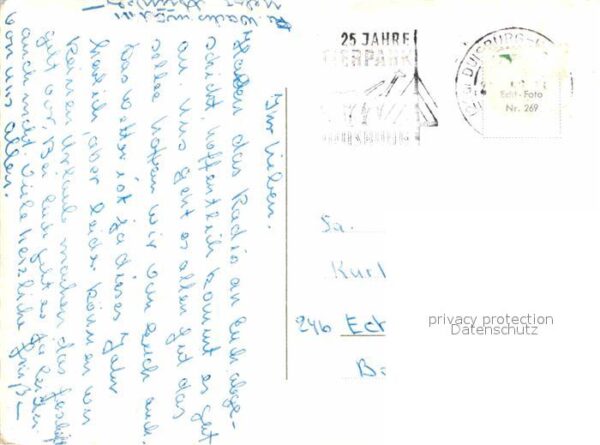 Ihr Lieben.
Haben das Radio an Euch abge-
schickt, hoffentlich kommt es gut
an. Uns geht es allen gut das
selbe hoffen wir von Euch auch.
Das Wetter ist ja dieses Jahr
herrlich, aber leider können wir
keinen Urlaub machen, das Geschäft
geht vor, bei Euch geht es ja leider
auch nicht. Viele herzliche Grüße
von uns allen.
25 JAHRE
TIERPARK
DUISBURG
Edit-Foto
Nr. 269
Fa.
Kurl
24b Eck
B
privacy protection
Datenschutz